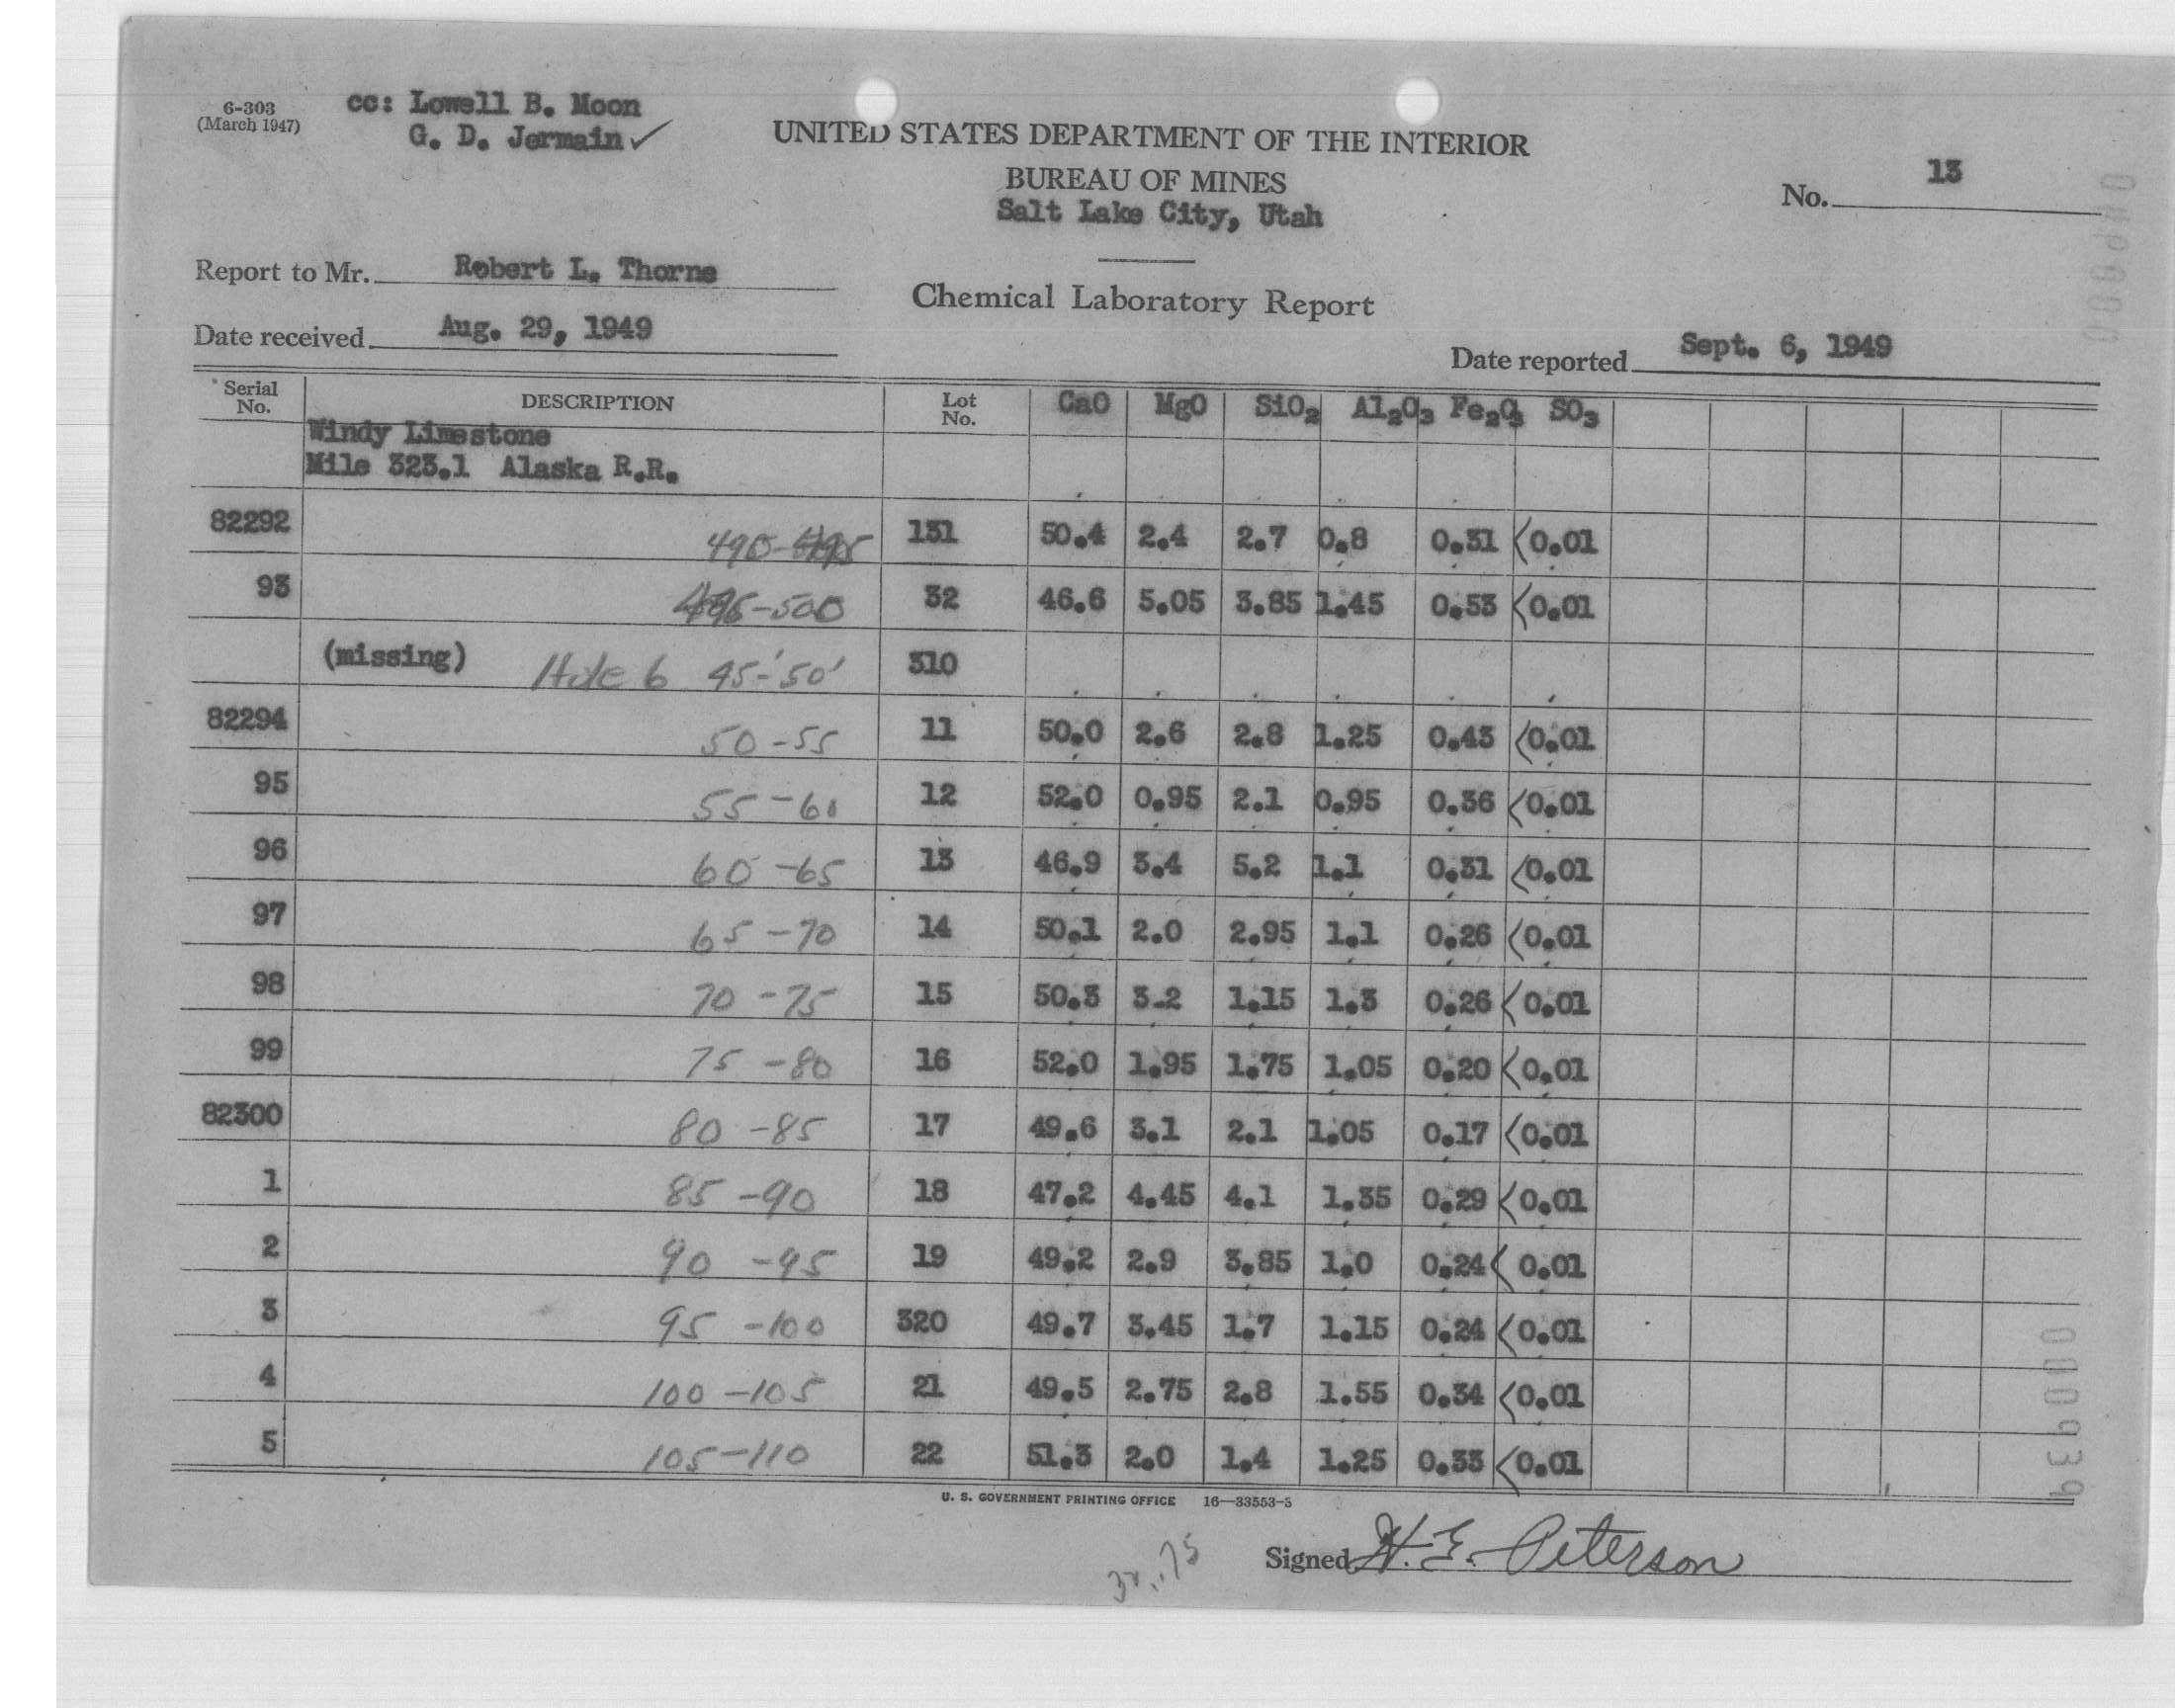 6-303
(March 1947)
cc: Lowell B. Moon
G. D. Jermain ✓
UNITED STATES DEPARTMENT OF THE INTERIOR
BUREAU OF MINES
Salt Lake City, Utah
No. 13
Report to Mr. Robert L. Thorne
Chemical Laboratory Report
Date received Aug. 29, 1949
Date reported Sept. 6, 1949
Serial No. DESCRIPTION Lot No. CaO MgO SiO2 Al2O3 Fe2O3 SO3
Windy Limestone
Mile 323.1 Alaska R.R.
82292 490-495 131 50.4 2.4 2.7 0.8 0.31 <0.01
93 495-500 32 46.6 5.05 3.85 1.45 0.53 <0.01
(missing) Hole 6 45'-50' 310
82294 50-55 11 50.0 2.6 2.8 1.25 0.43 <0.01
95 55-60 12 52.0 0.95 2.1 0.95 0.36 <0.01
96 60-65 13 46.9 3.4 5.2 1.1 0.31 <0.01
97 65-70 14 50.1 2.0 2.95 1.1 0.26 <0.01
98 70-75 15 50.3 3.2 1.15 1.3 0.26 <0.01
99 75-80 16 52.0 1.95 1.75 1.05 0.20 <0.01
82300 80-85 17 49.6 3.1 2.1 1.05 0.17 <0.01
1 85-90 18 47.2 4.45 4.1 1.35 0.29 <0.01
2 90-95 19 49.2 2.9 3.85 1.0 0.24 <0.01
3 95-100 320 49.7 3.45 1.7 1.15 0.24 <0.01
4 100-105 21 49.5 2.75 2.8 1.55 0.34 <0.01
5 105-110 22 51.3 2.0 1.4 1.25 0.33 <0.01
U. S. GOVERNMENT PRINTING OFFICE 16—33553-3
Signed H. E. Peterson
000939